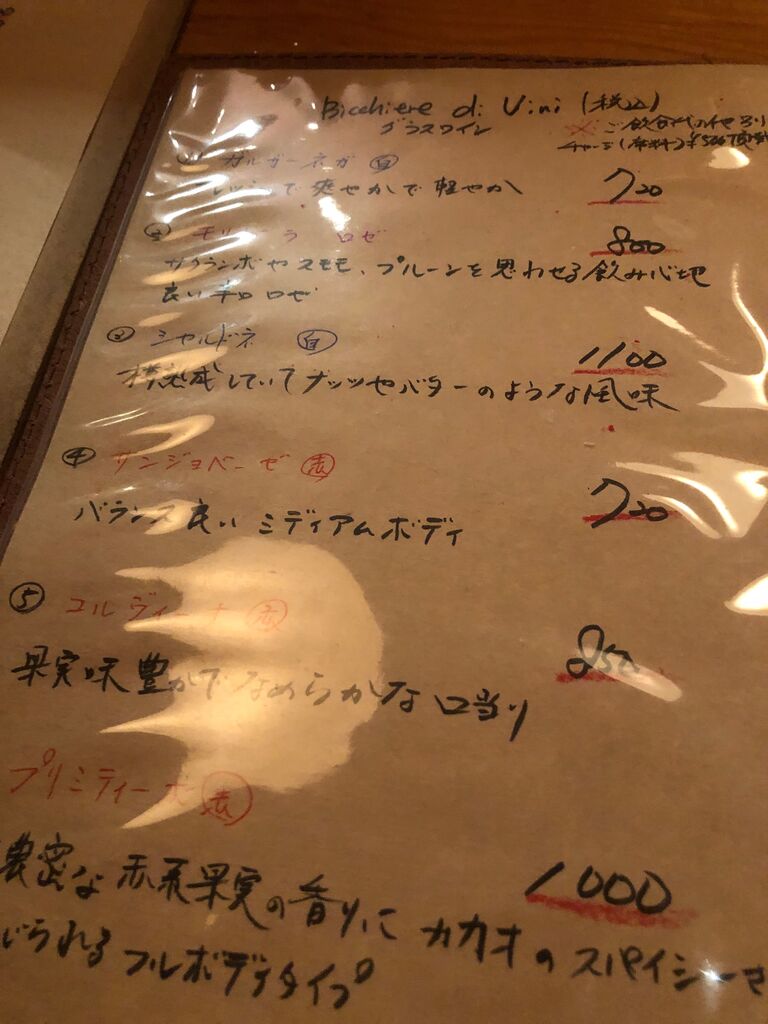 Bicchiere di Vini (税込)
グラスワイン
※ ご飲食代の他 別り
チャージ(席料) ¥500頂戴
① ガルガーネガ 白
で爽やかで軽やか 720
② ロゼ 800
サクランボやスモモ、プルーンを思わせる飲み心地
良い辛口ロゼ
③ シャルドネ 白 1100
樽熟成していてナッツやバターのような風味
④ サンジョベーゼ 赤 720
バランス良い ミディアムボディ
⑤ コルヴィーナ 赤 850
果実味豊かでなめらかな口当り
プリミティーボ 赤
濃密な赤系果実の香りに カカオのスパイシーさ 1000
じられるフルボディタイプ